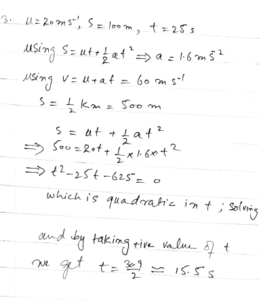 3. u = 20 ms⁻¹, S = 100m, t = 25 s
using S = ut + ½ at² ⇒ a = 1.6 m s²
using v = u + at = 60 ms⁻¹
S = ½ km = 500 m
S = ut + ½ at²
⇒ 500 = 20t + ½ × 1.6 × t²
⇒ t² - 25t - 625 = 0
which is quadratic in t ; solving
and by taking +ive value of t
we get t = 309/2 ≈ 15.5 s